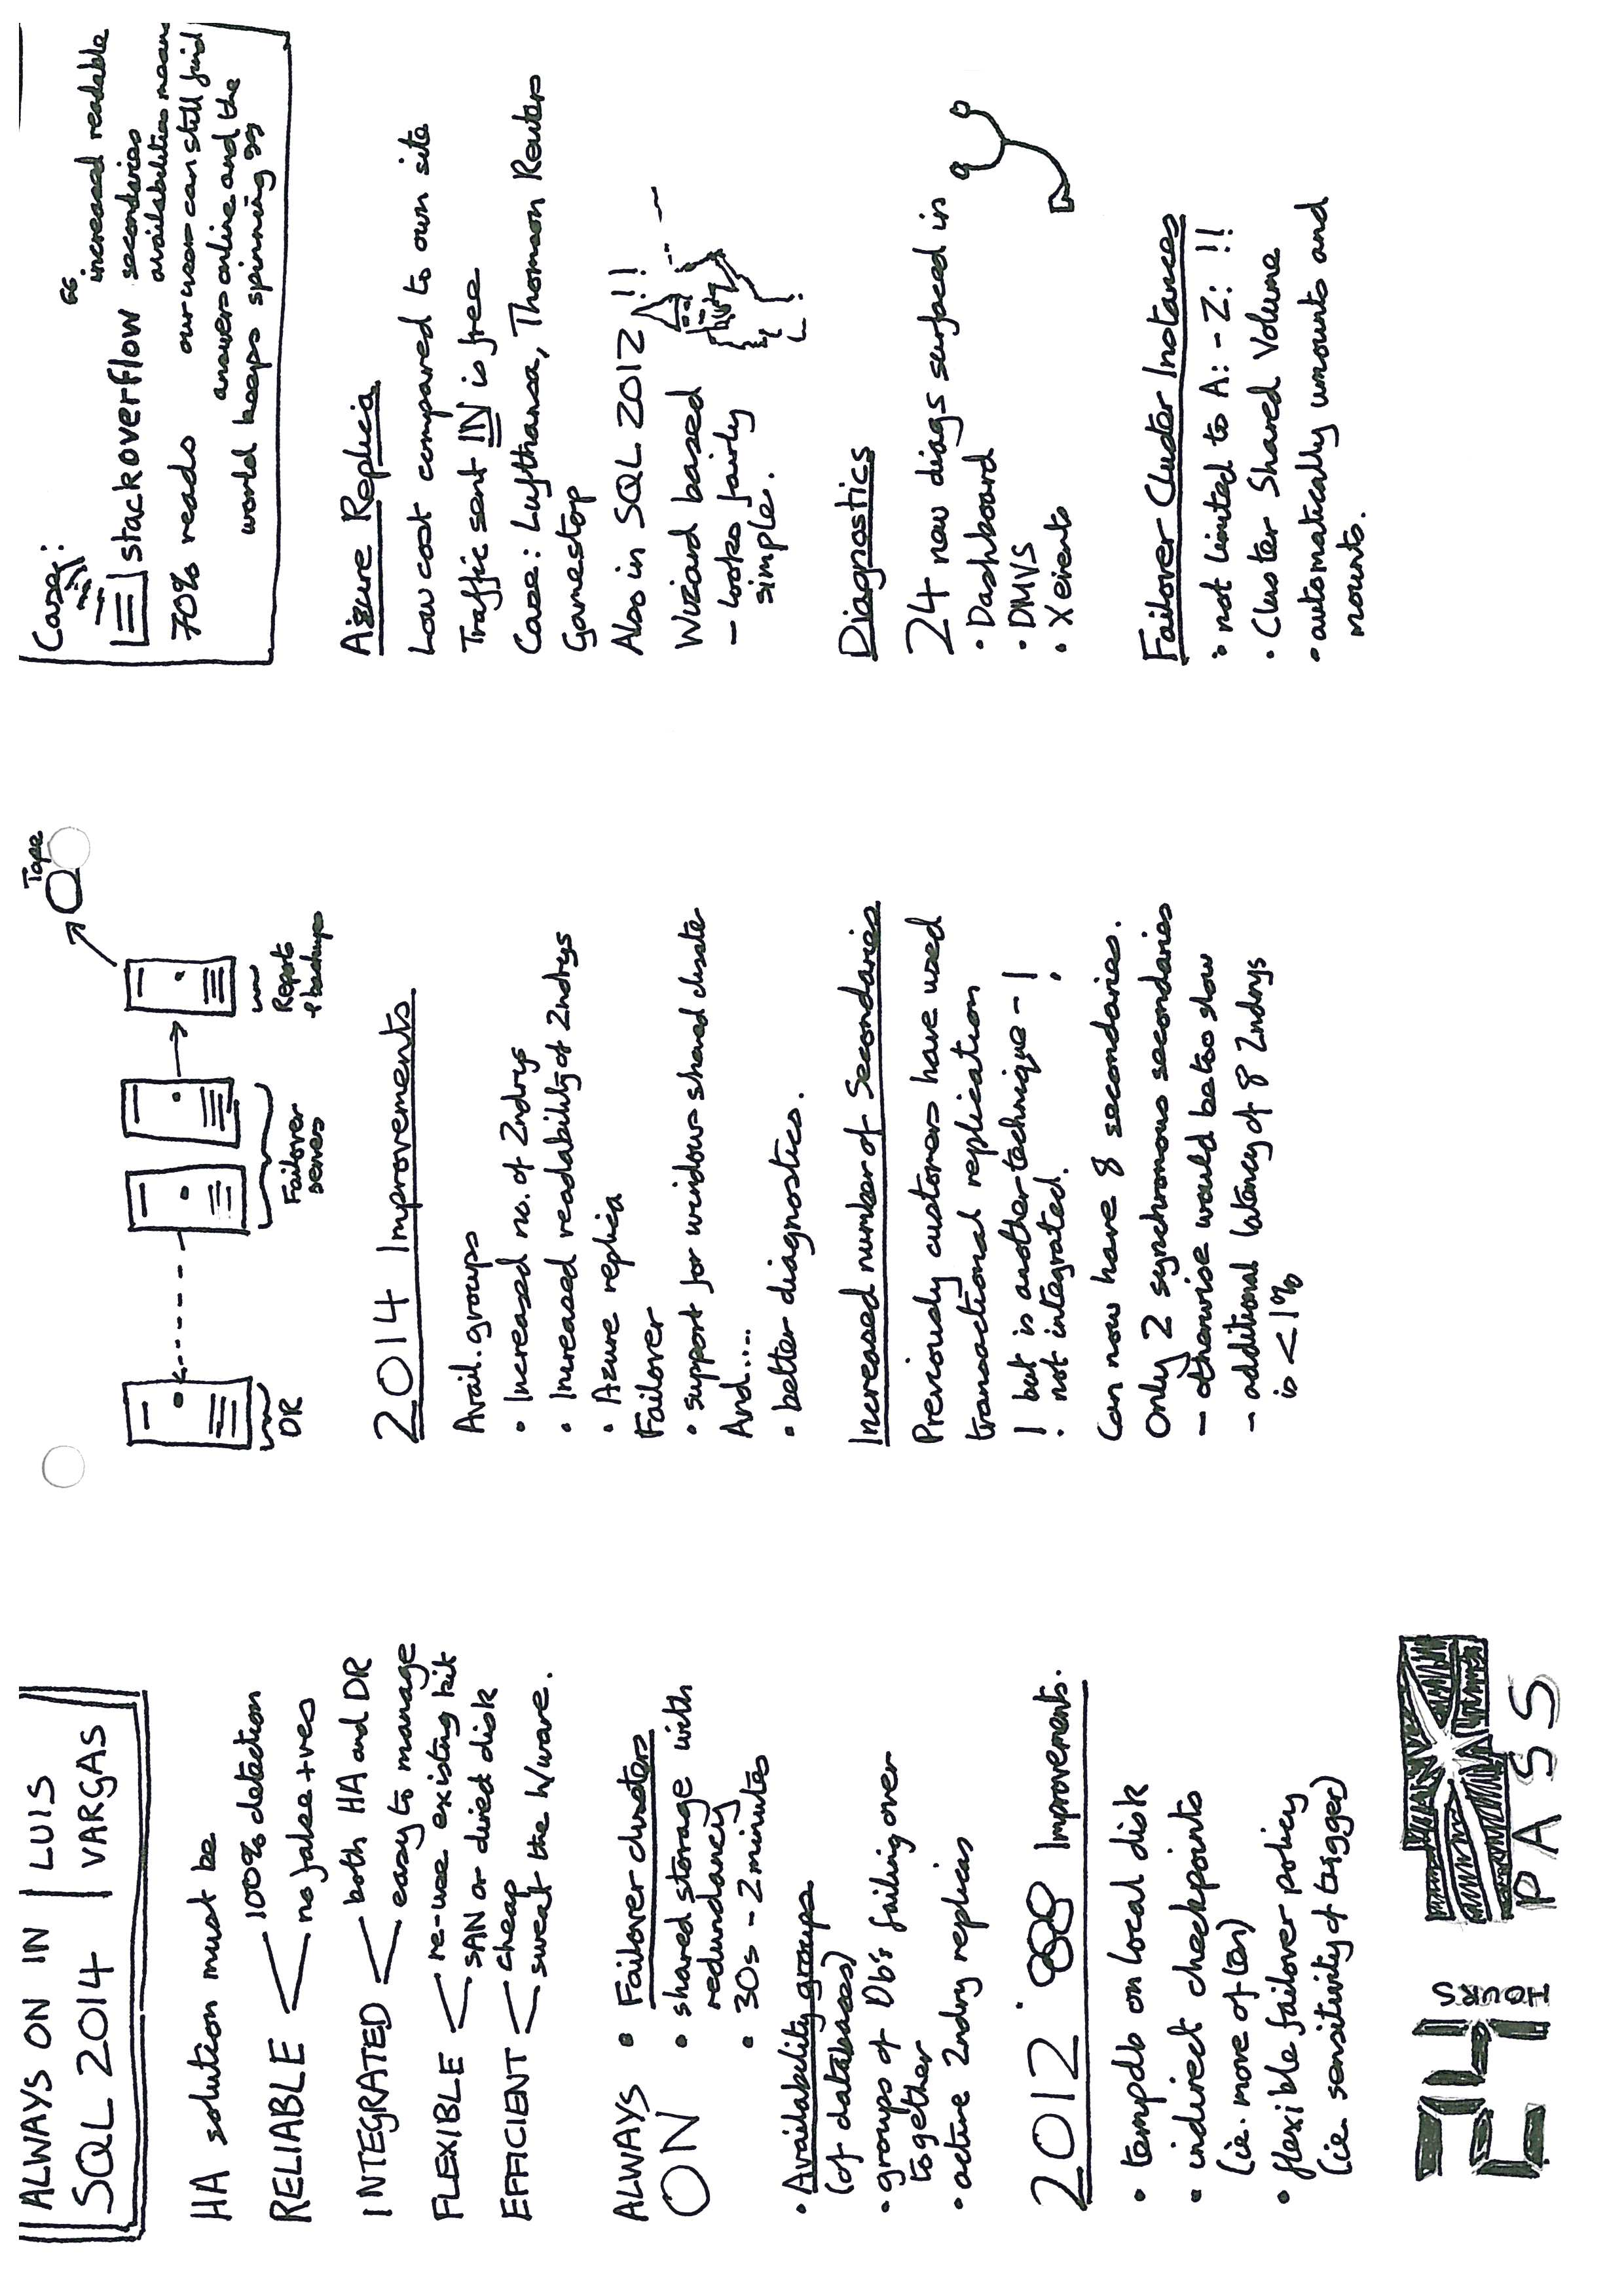 ALWAYS ON IN
SQL 2014
LUIS
VARGAS
HA solution must be
RELIABLE
100% detection
no false +ves
INTEGRATED
both HA and DR
easy to manage
FLEXIBLE
re-use existing kit
SAN or direct disk
EFFICIENT
cheap
sweat the h/ware.
ALWAYS
ON
• Failover clusters
• shared storage with
redundancy
• 30s - 2 minutes
• Availability groups
(of databases)
• groups of Db's failing over
together
• active 2ndry replicas
2012 Improvements.
• tempdb on local disk
• indirect checkpoints
(ie. more often)
• flexible failover policy
(ie. sensitivity of trigger)
24 HOURS
PASS
Tape
DR
Failover
servers
Reports
& backups
2014 Improvements
Avail. groups
• Increased no. of 2ndrys
• Increased readability of 2ndrys
• Azure replica
Failover
• support for windows shared cluster
And.....
• better diagnostics.
Increased number of Secondaries
Previously customers have used
transactional replication
! but is another technique - !
not integrated.
Can now have 8 secondaries.
Only 2 synchronous secondaries
- otherwise would be too slow
- additional latency of 8 2ndrys
is < 1%
Case:
stackoverflow
70% reads
“increased readable
secondaries
availabilities means
our users can still find
answers online and the
world keeps spinning”
Azure Replica
Low cost compared to own site
Traffic sent IN is free
Case: Lufthansa, Thomson Reuters
Gamestop
Also in SQL 2012 !!
Wizard based
- looks fairly
simple.
Diagnostics
24 new diags surfaced in
• Dashboard
• DMVS
• X events
Failover Cluster Instances
• not limited to A: - Z: !!
• Cluster Shared Volume
• automatically umounts and
mounts.